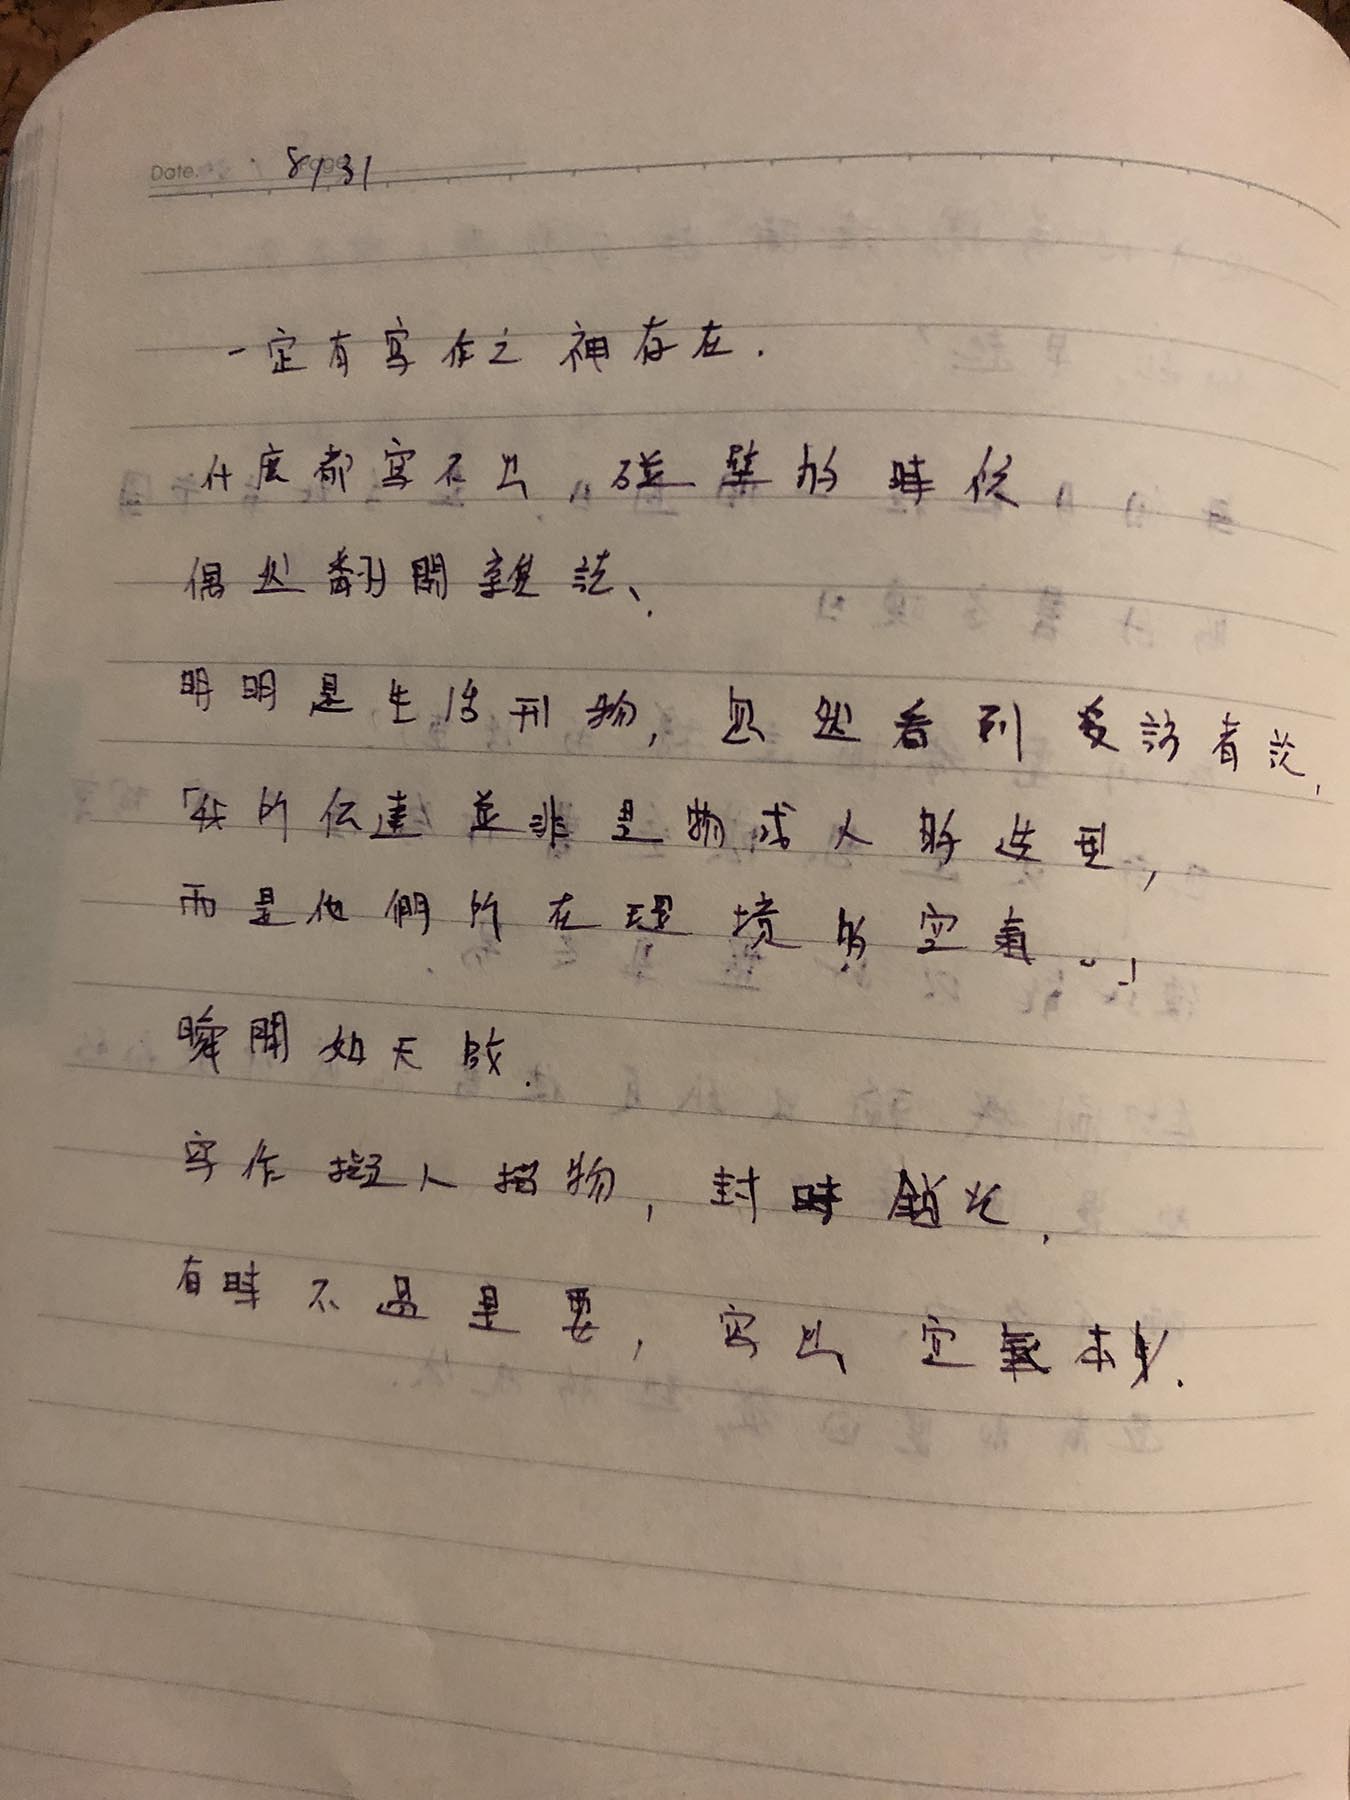 Date.
8/31
一定有写作之神存在.
什麼都写不出,碰壁的時候
偶然翻開雜誌、
明明是生活刊物,忽然看到受訪者說,
「我所伝達並非是物或人的造型,
而是他們所在環境的空氣。」
瞬間如天啟.
写作擬人描物,封時鎖光,
有時不過是要,写出空氣本身.